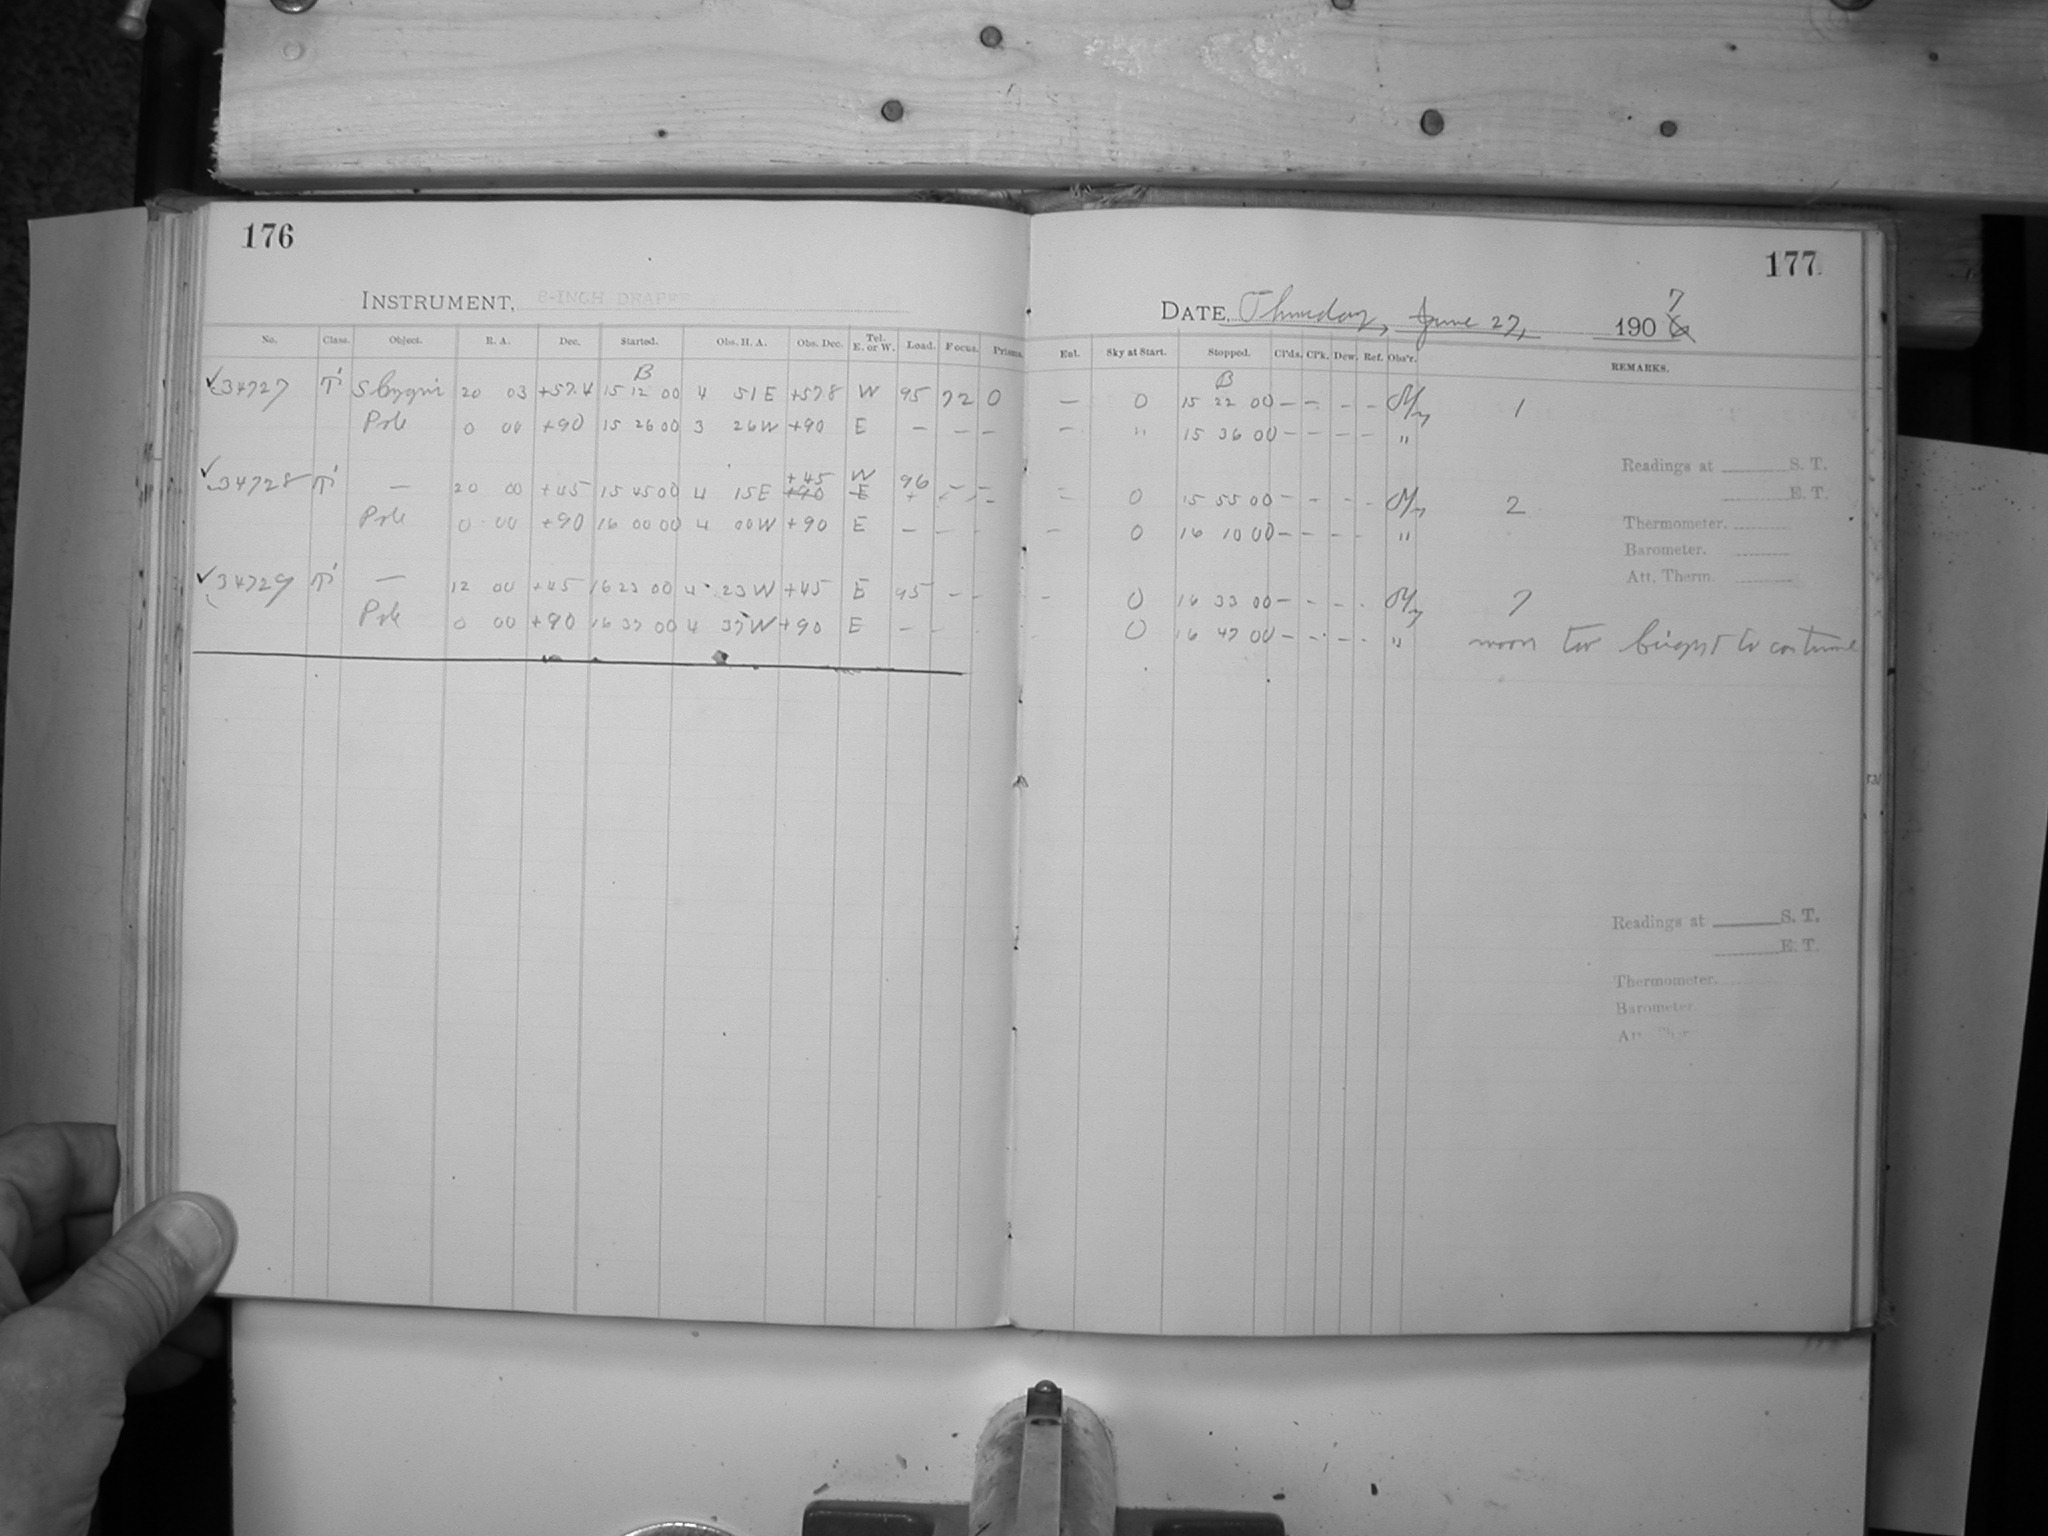 176
INSTRUMENT, 8-INCH DRAPER
No. Class. Object. R. A. Dec. Started. Obs. H. A. Obs. Dec. Tel. E. or W. Load. Focus. Prisms.
B
✓34727 S Cygni 20 03 +57.4 15 12 00 4 51 E +578 W 95 72 0
Pole 0 00 +90 15 26 00 3 26 W +90 E — — —
+45 W 96
✓34728 — 20 00 +45 15 45 00 4 15 E +90 E
Pole 0 00 +90 16 00 00 4 00 W +90 E — — -
✓34729 — 12 00 +45 16 23 00 4 23 W +45 E 95 - -
Pole 0 00 +90 16 37 00 4 37 W +90 E — -
177
DATE, Thursday, June 27, 190 6 7
Ent. Sky at Start. Stopped. Cl'ds. Cl'k. Dew. Ref. Obs'r. REMARKS.
B
— 0 15 22 00 — — - - 1
— " 15 36 00 — — — — "
Readings at S. T.
E. T.
0 15 55 00 - - - - 2
Thermometer.
— 0 16 10 00 — — — - "
Barometer.
Att. Therm.
- 0 16 33 00 - - - - 7
0 16 47 00 — - — - " moon too bright to continue
Readings at S. T.
E. T.
Thermometer.
Barometer.